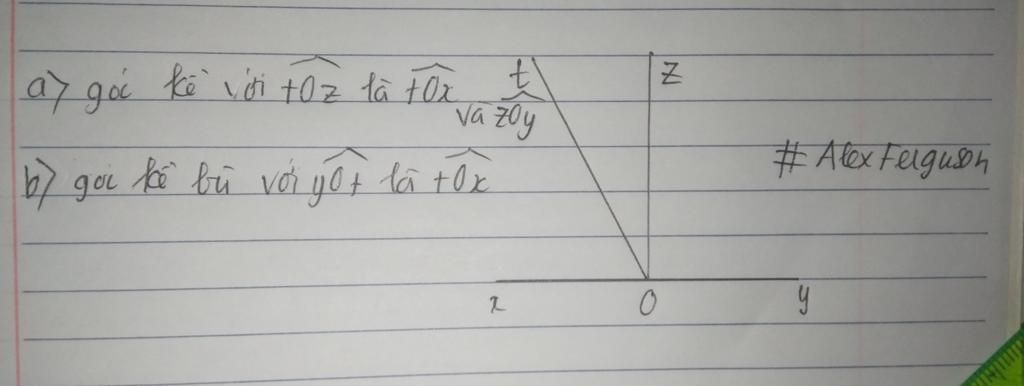 a) góc kề với tOz là tOx
và zOy
b) góc kề bù với yOt là tOx
t
z
# Alex Ferguson
x O y